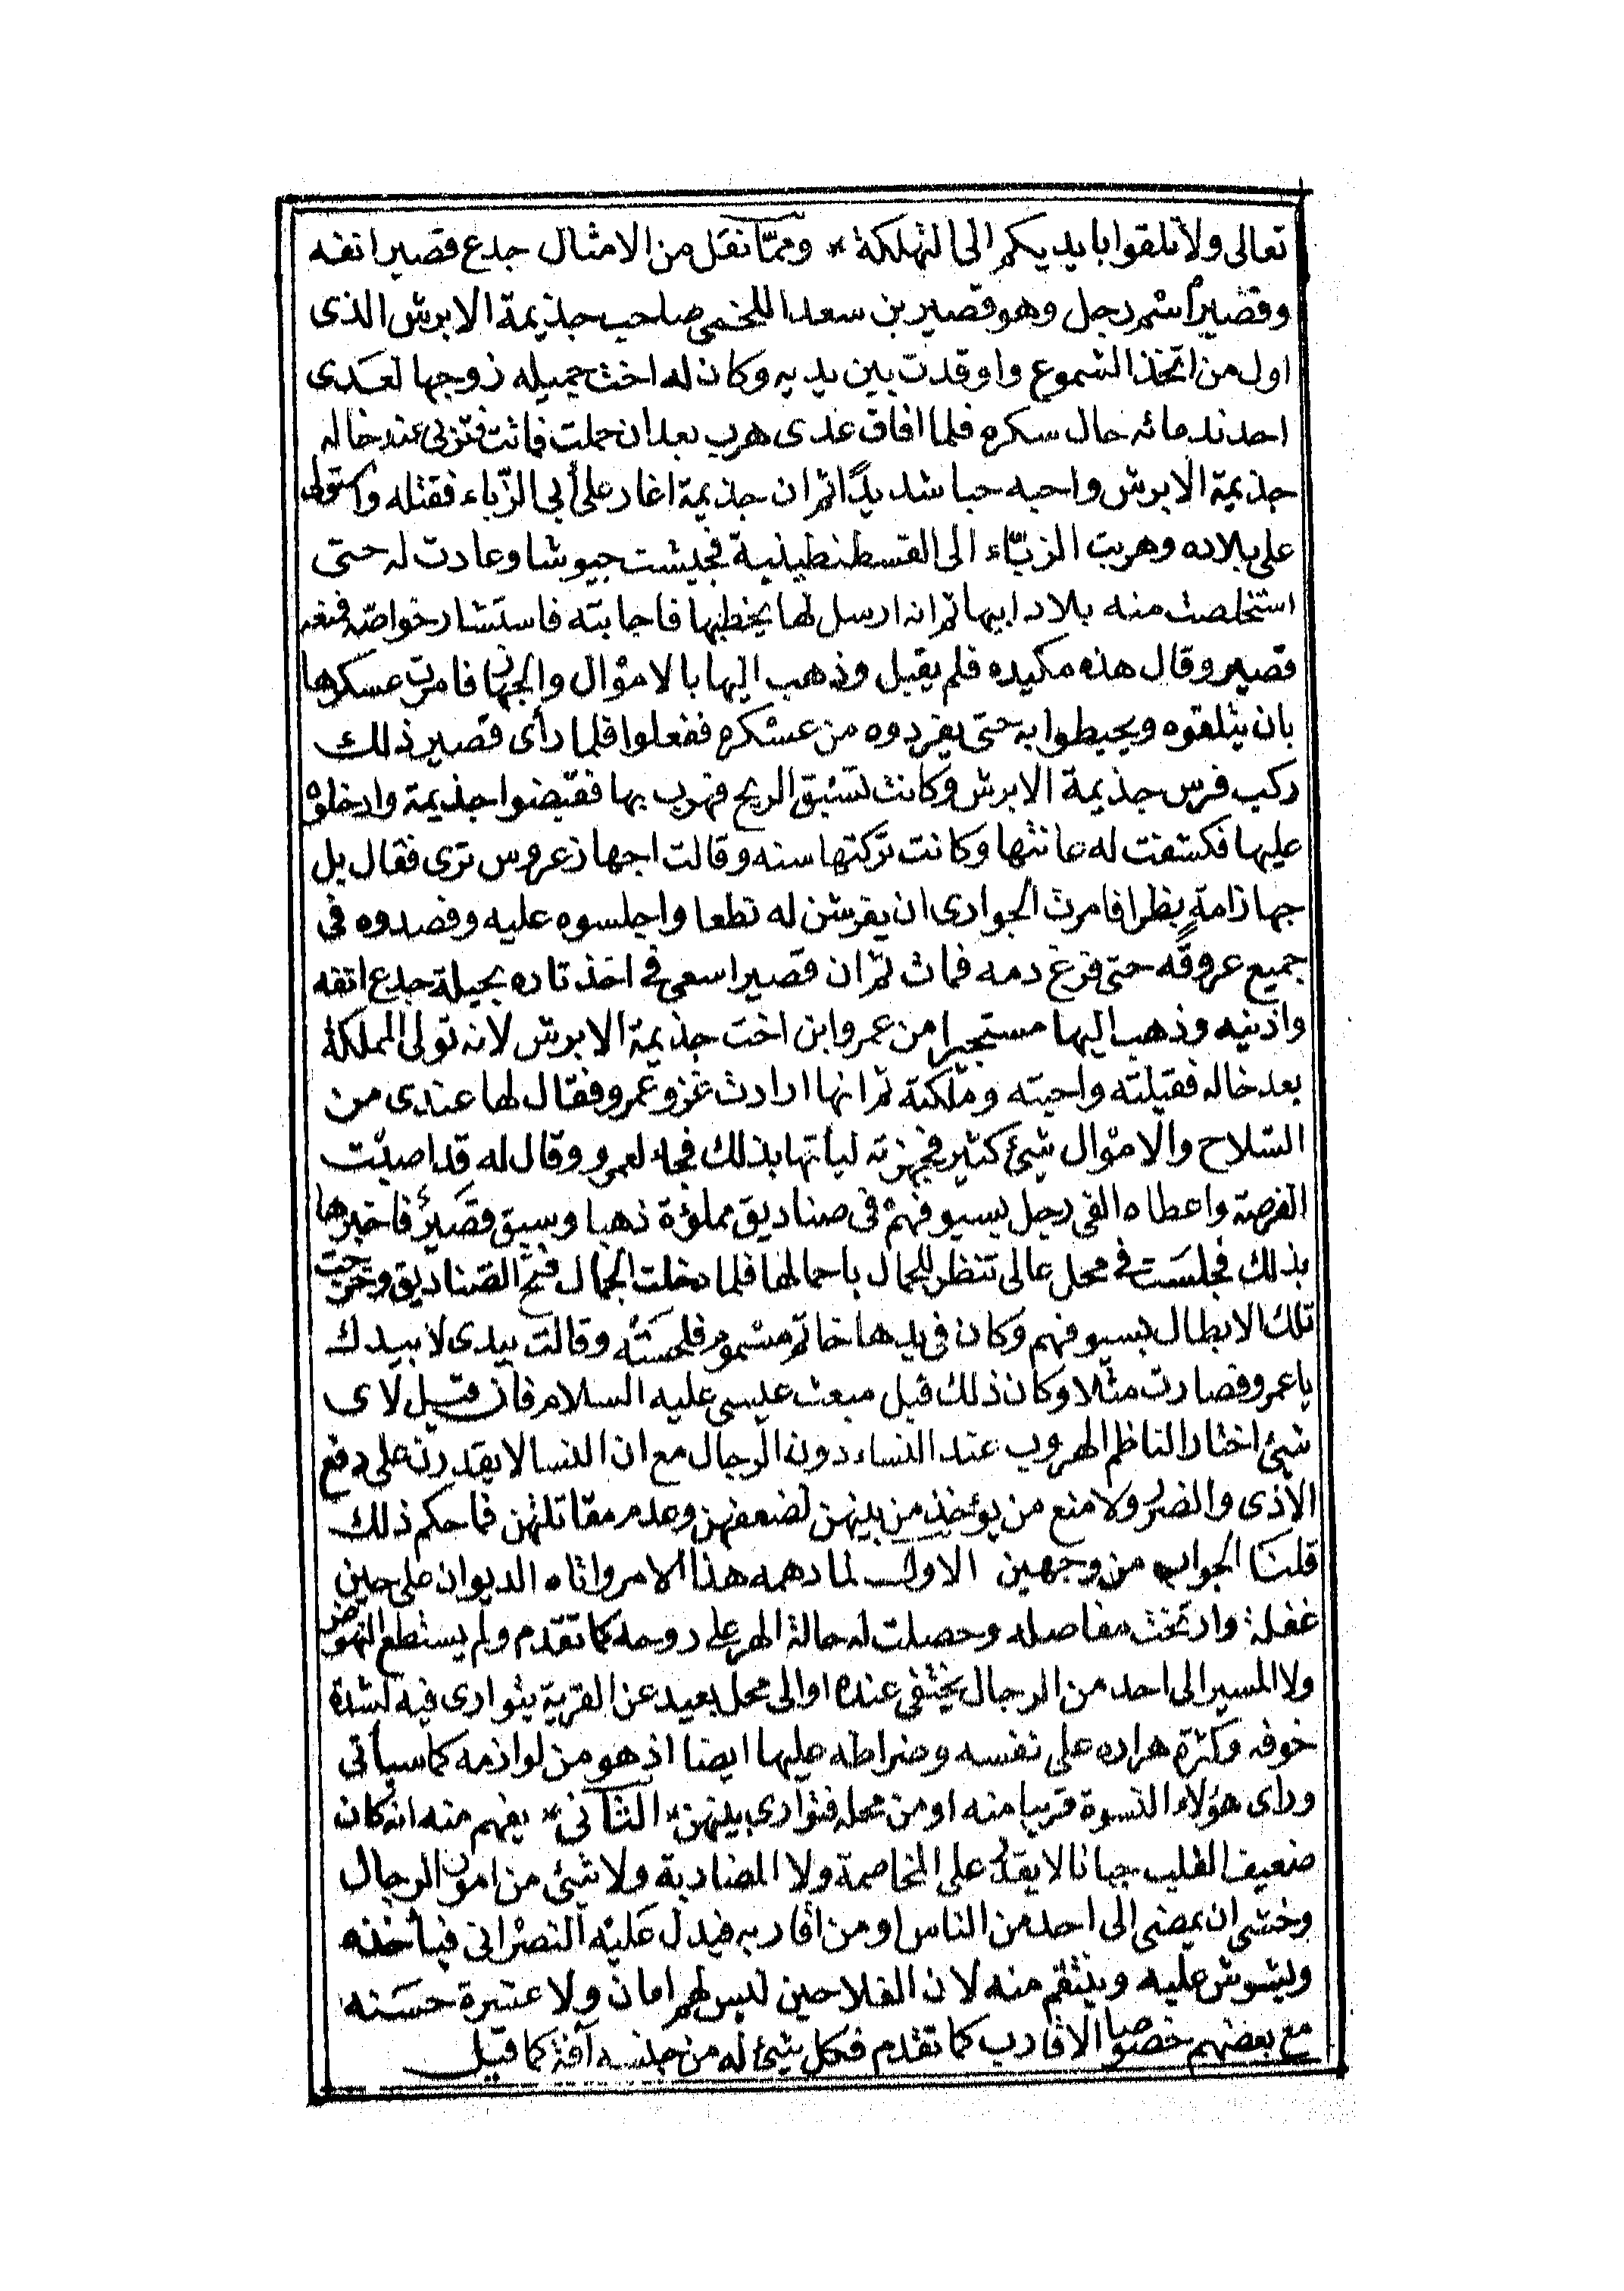 تعالى ولا تلقوا بايديكم الى التهلكة * وممّا نقل من الامثال جدع قصير انفه
وقصيرٌ اسْم رجل وهو قصير بن سعد اللخمى صاحب جذيمة الابرش الذى
اول من اتّخذ الشموع واوقدت بين يديه وكان له اخت جميله زوجها لعَدى
احد ندمائه حال سكره فلما افاق عدى هرب بعد ان حملت فاتت فتربى عند خاله
جذيمة الابرش واحبه حبا شديدًا ثم ان جذيمة اغار على أبى الزّباء فقتله واستولى
على بلاده وهربت الزبّاء الى القسطنطينية فجيشت جيوشا وعادت له حتى
استخلصت منه بلاد ابيها ثم انه ارسل لها يخطبها فاجابته فاستشار خواصّه فمنعه
قصير وقال هذه مكيده فلم يقبل وذهب اليها بالاموْال والجهاز فامرت عسكرها
بان يتلقوه ويحيطوا به حتى يفردوه من عسْكره ففعلوا فلما رأى قصير ذلك
ركب فرس جذيمة الابرش وكانت تسْبق الريح فهرب بها فقبضوا جذيمة وادخلوْه
عليها فكشفت له عانتها وكانت تركتها سنه وقالت اجهاز عروس ترى فقال بل
جهاز امةٍ بظرا فامرت الجوارى ان يفرشن له نطعا واجلسوه عليه وفصدوه فى
جميع عروقه حتى فرغ دمه فمات ثمّ ان قصيرا سعى فى اخذ تاره بحيلة جدع انفه
واذنيه وذهب اليها مستجيرا من عمرو ابن اخت جذيمة الابرش لانه تولى المملكة
بعد خاله فقبلته واحبته وملّكته ثم انها ارادت غزو عمرو فقال لها عندى من
السّلاح والاموْال شيئ كثير فجهزته ليأتها بذلك فجاء لعمرو وقال له قد اصبْت
الفرصة واعطاه الفى رجل بسيوفهمْ فى صناديق مملؤة ذهبا وسبق قصَيرٌ فاخبرها
بذلك فجلسَت فى محل عالى تنظر للجمال باحمالها فلما دخلت الجمال فتح الصّناديق وخرجت
تلك الابطال بسيوفهم وكان فى يدها خاتم مسْموم فلحسَتْه وقالت بيدى لا بيدك
يا عمرو فصارت مثلا وكان ذلك قبل مبعث عيسى عليه السلام فان قيل لاى
شيئ اختار الناظم الهروب عند النساء دون الرجال مع ان النسا لا يقدرن على دفع
الاذى والضرر ولا منع من يؤخذ من بينهن لضعفهن وعدم مقاتلتهن فما حكم ذلك
قلنا الجواب من وجهين الاول لما دهمه هذا الامر واتاه الديوان على حين
غفلة وارتخت مفاصله وحصلت له حالة الهر على روحه كما تقدم ولم يستطع النهوض
ولا المسير الى احد من الرجال يختفى عنده او الى محل بعيد عن القرية يتوارى فيه لشدة
خوفه وكثرة هراره على نفسه وضراطه عليها ايضا اذ هو من لوازمه كما سيأتى
وراى هؤلاء النسوة قريبا منه او من محله فتوارى بينهن * الثّانى * يفهم منه انه كان
ضعيف القلب جبانا لا يقدر على المخاصمة ولا المضاربة ولا شيئ من امور الرجال
وخشى ان يمضى الى احد من الناس او من اقاربه فيدل عَليْه النصْرانى فيأخذه
ويشوش عليه وينتقم منه لان الفلاحين ليس لهم امان ولا عشرة حسَنه
مع بعضهم خصوصا الاقارب كما تقدم فكل شيئ له من جنسه آفة كما قيل